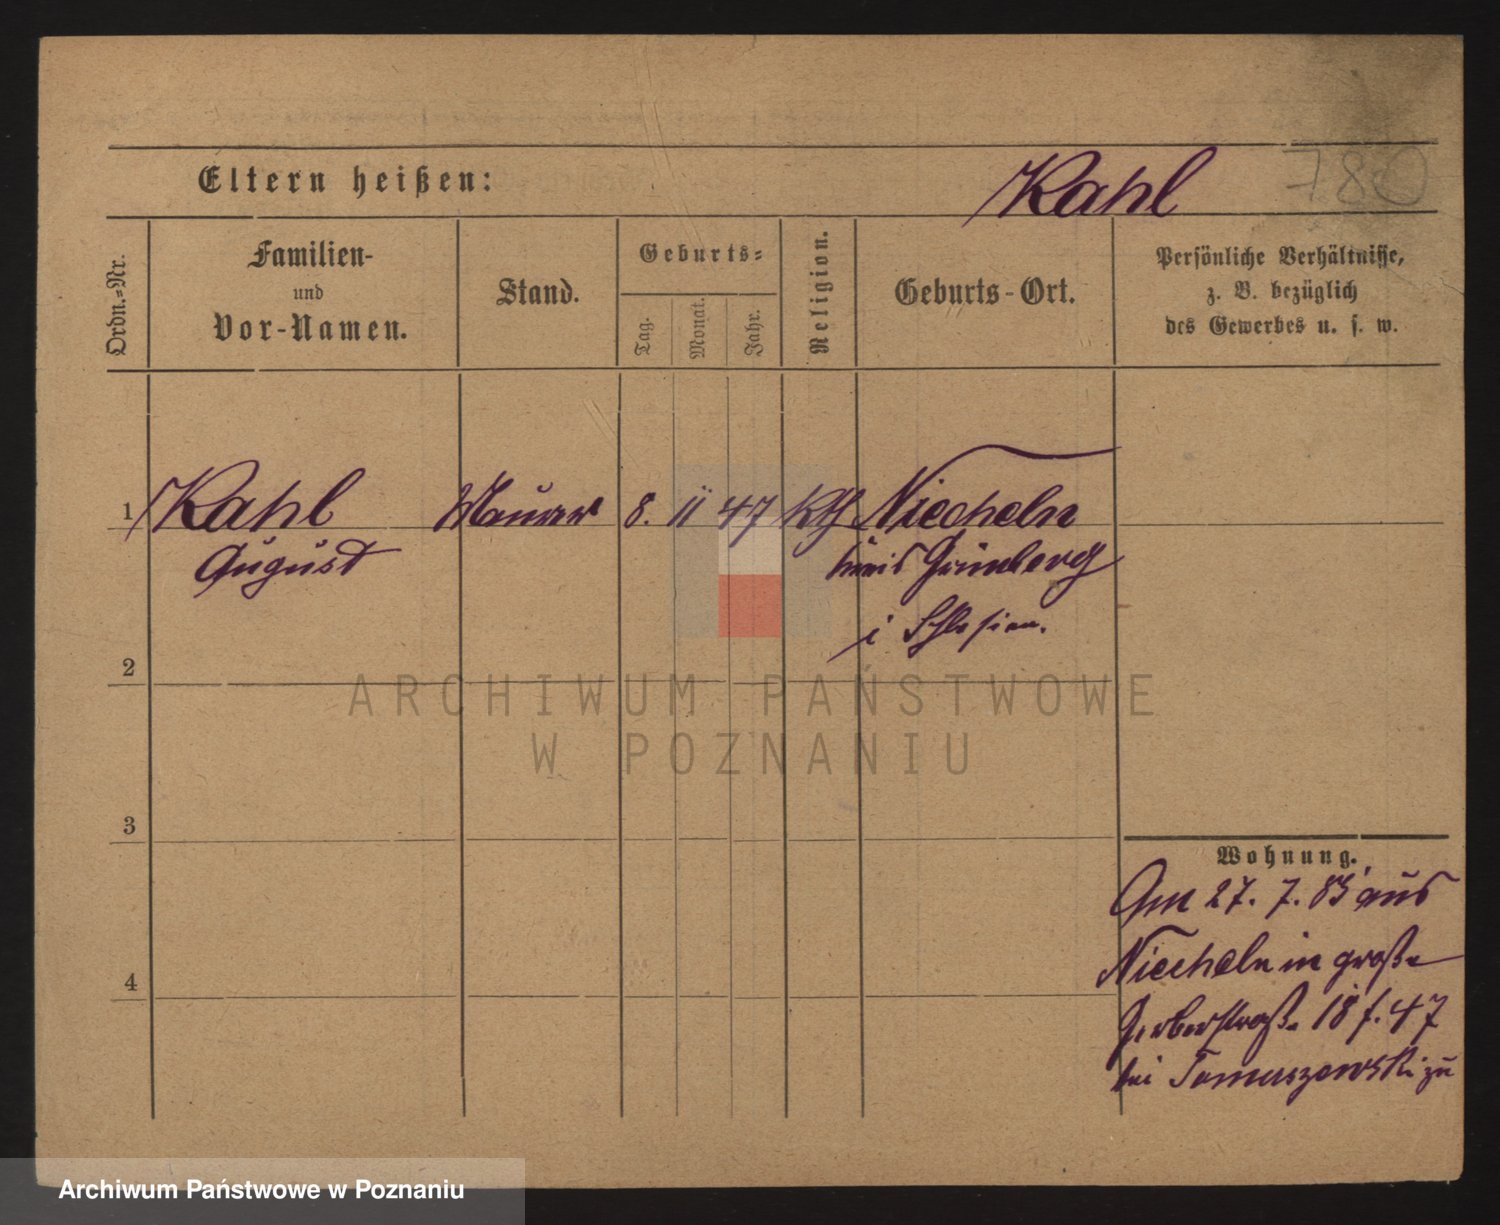 Eltern heißen:
Kahl
780
Ordn.-Nr.
Familien-
und
Vor-Namen.
Stand.
Geburts-
Tag.
Monat.
Jahr.
Religion.
Geburts-Ort.
Persönliche Verhältnisse,
z. B. bezüglich
des Gewerbes u. s. w.
1 Kahl Maurer 8. 11 47 kth Niecheln
August Kreis Grünberg
i Schlesien.
2
3
4
Wohnung.
Am 27. 7. 83 aus
Niecheln in große
Gerberstraße 18 f. 47
bei Tomaszewski zu
ARCHIWUM PAŃSTWOWE
W POZNANIU
Archiwum Państwowe w Poznaniu